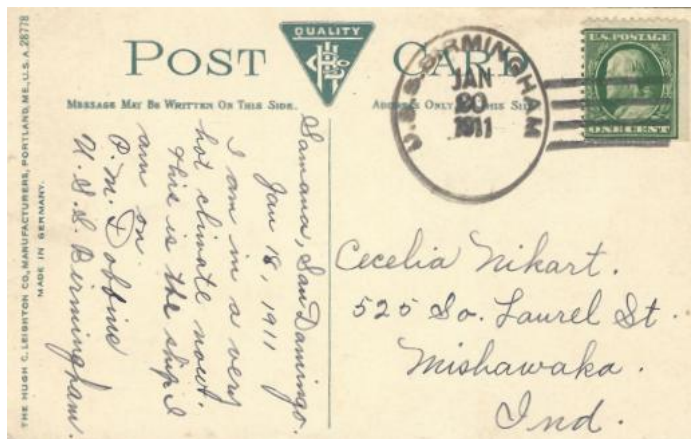 THE HUGH C. LEIGHTON CO., MANUFACTURERS, PORTLAND, ME., U.S.A. 28778
MADE IN GERMANY.
QUALITY
POST CARD
MESSAGE MAY BE WRITTEN ON THIS SIDE.
ADDRESS ONLY ON THIS SIDE
U.S.S. BIRMINGHAM
JAN
20
1911
U.S. POSTAGE
ONE CENT
Samana, San Damingo.
Jan 18, 1911
I am in a very
hot climate now.
This is the ship I
am on.
P. M. Dobbins
U. S. S. Birmingham.
Cecelia Nikart.
525 So. Laurel St.
Mishawaka.
Ind.